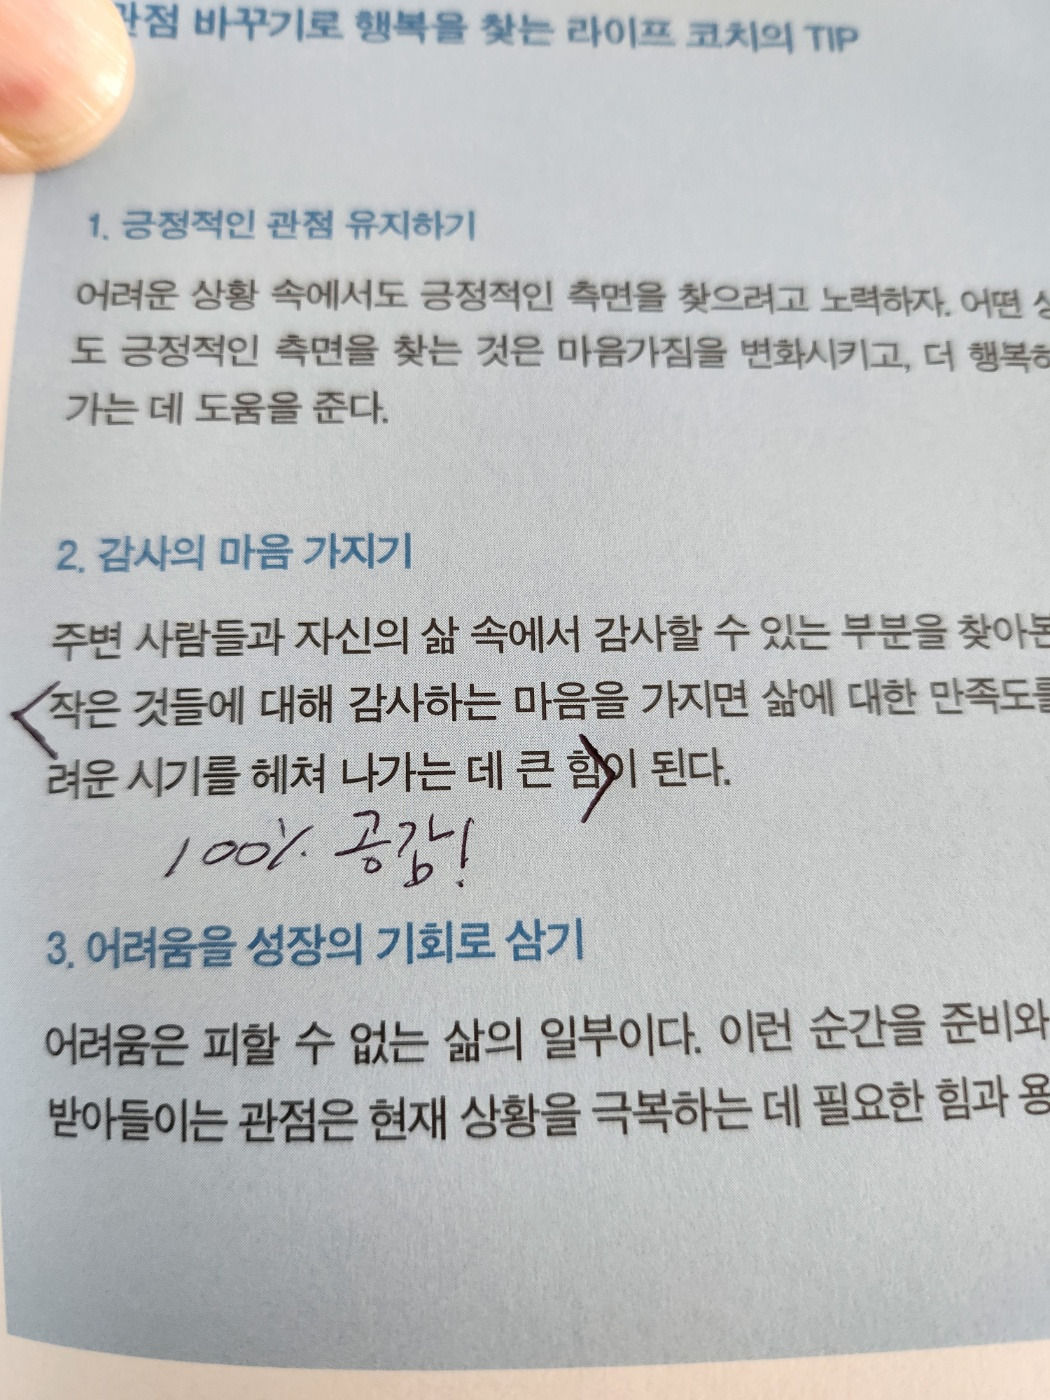 관점 바꾸기로 행복을 찾는 라이프 코치의 TIP
1. 긍정적인 관점 유지하기
어려운 상황 속에서도 긍정적인 측면을 찾으려고 노력하자. 어떤
도 긍정적인 측면을 찾는 것은 마음가짐을 변화시키고, 더
가는 데 도움을 준다.
2. 감사의 마음 가지기
주변 사람들과 자신의 삶 속에서 감사할 수 있는 부분을
작은 것들에 대해 감사하는 마음을 가지면 삶에 대한 만족도를
려운 시기를 헤쳐 나가는 데 큰 힘이 된다.
100% 공감!
3. 어려움을 성장의 기회로 삼기
어려움은 피할 수 없는 삶의 일부이다. 이런 순간을 준비와
받아들이는 관점은 현재 상황을 극복하는 데 필요한 힘과